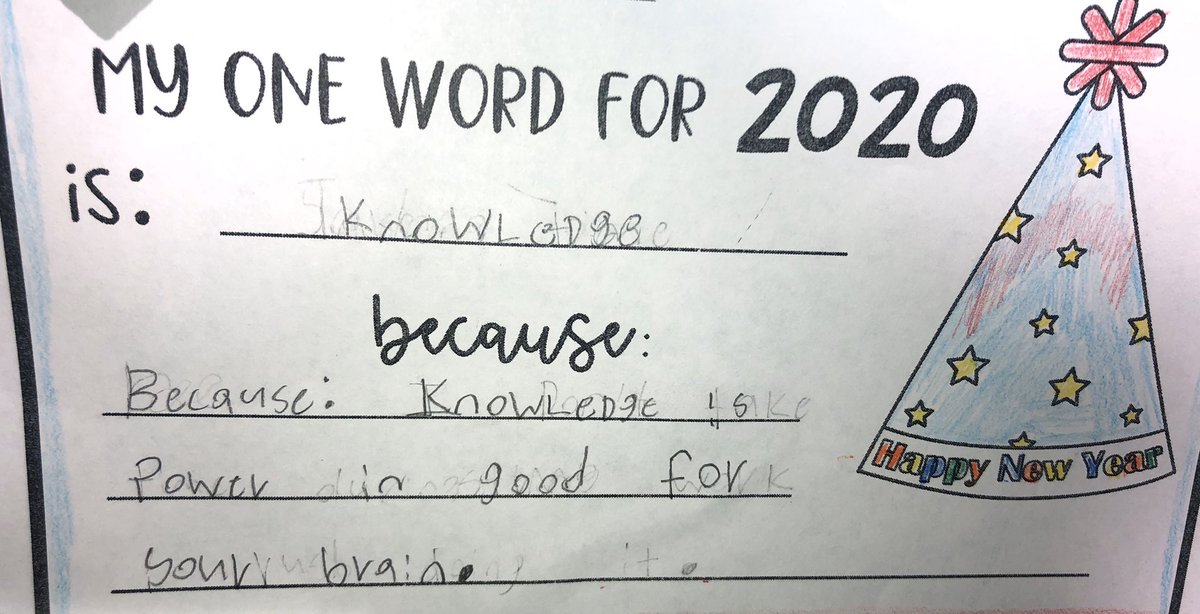 MY ONE WORD FOR 2020
is:
KnoWLEDge
because:
Because: KnowLEDge is
Power in good for
your brain.
Happy New Year